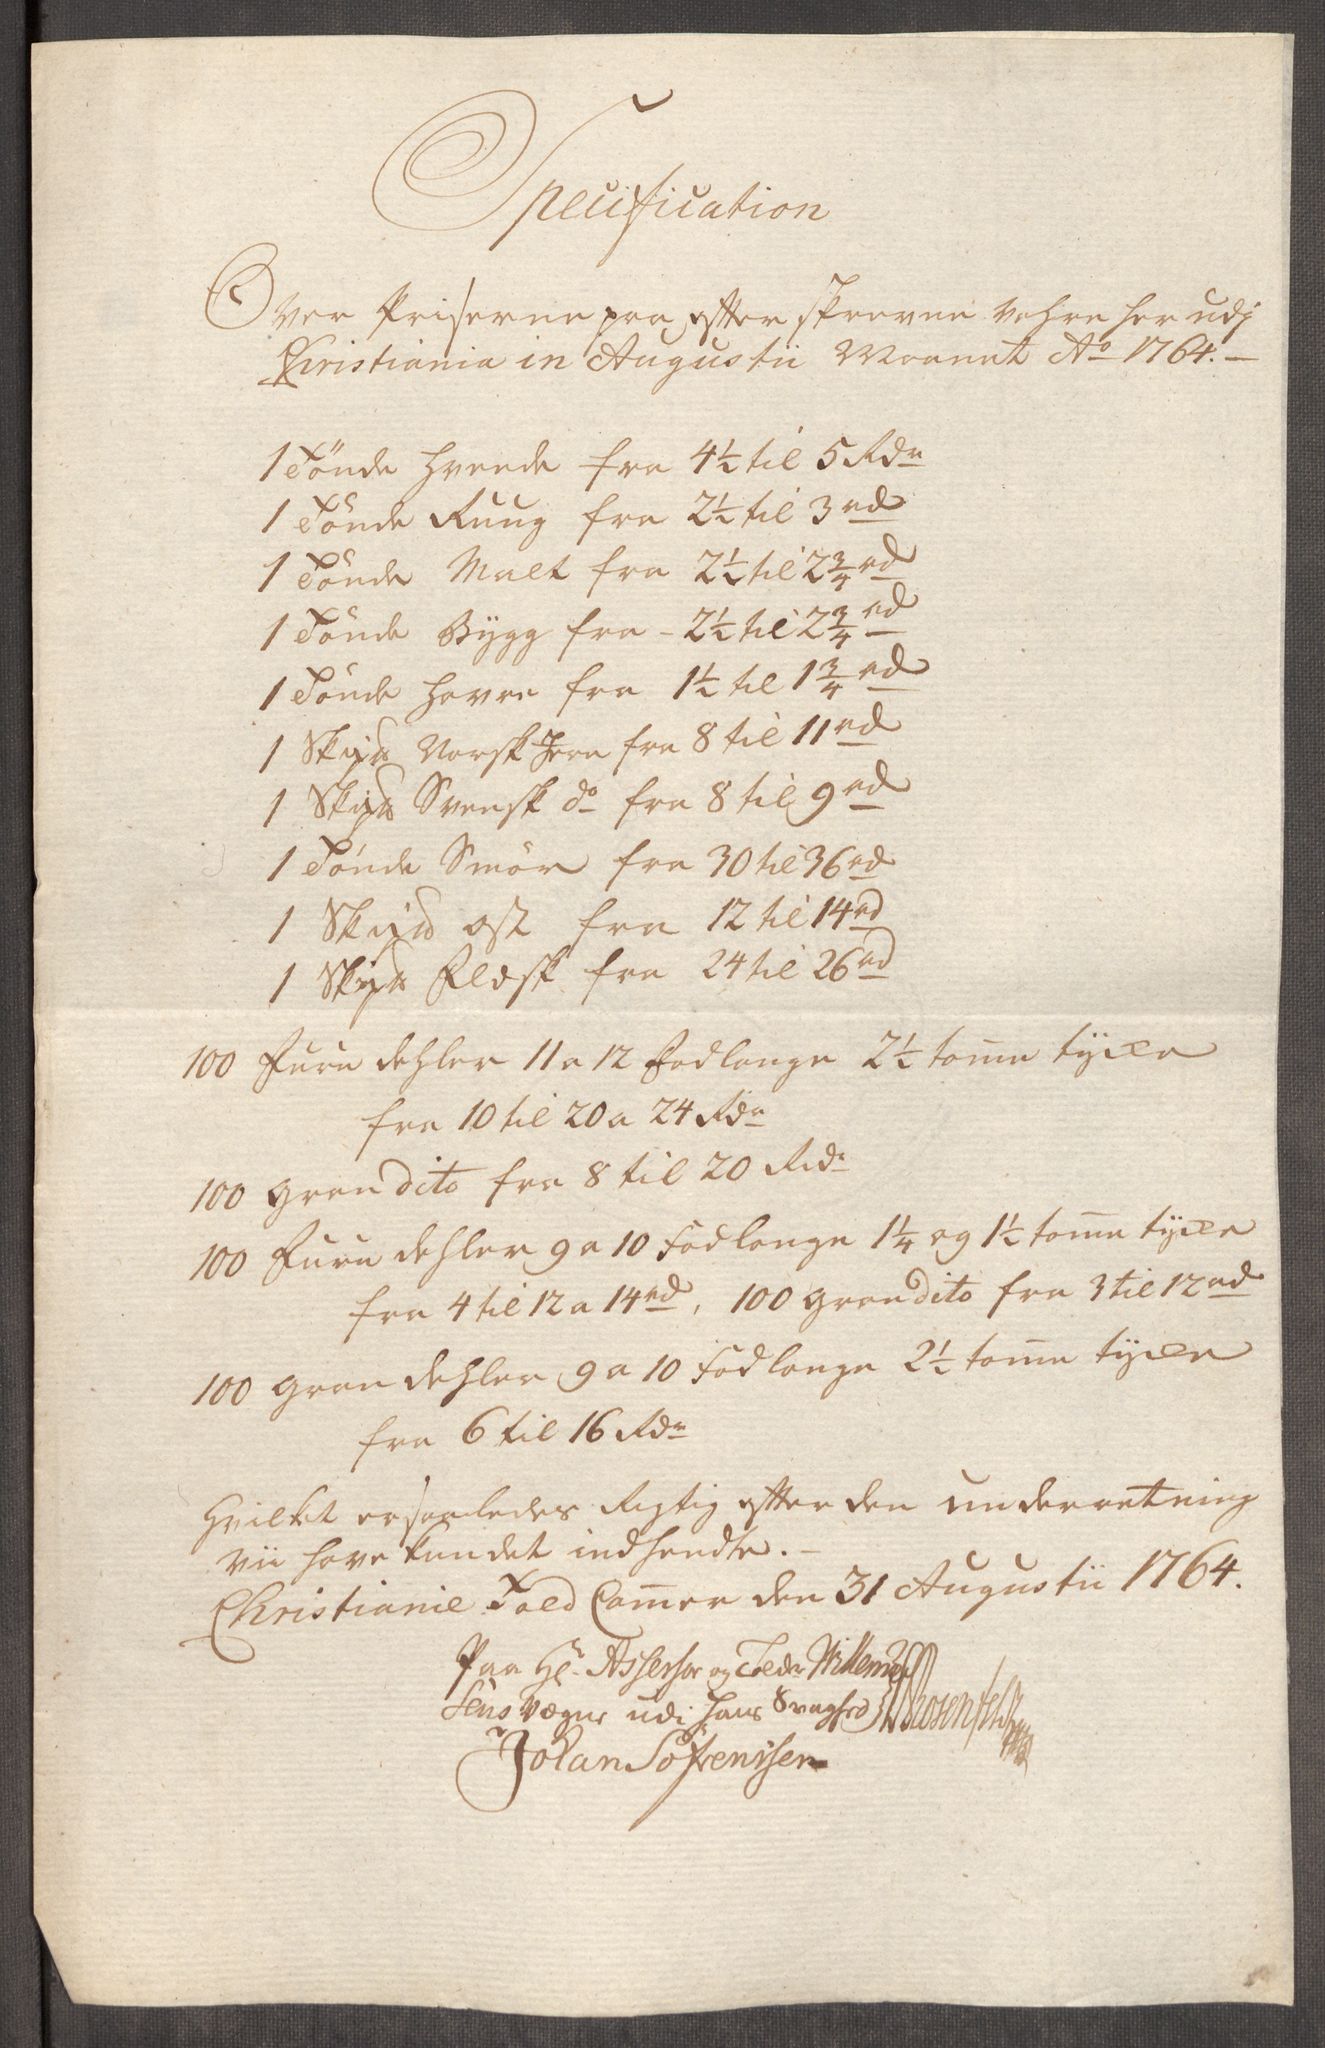 Specification
Over Priserne paa efter skrevne Vahre her udj
Christiania in Augustii Maanet Ao 1764. —
1 Tönde Hvede fra 4½ til 5 Rdr
1 Tönde Ruug fra 2½ til 3 rd
1 Tönde Malt fra 2½ til 2¾ rd
1 Tönde Bÿgg fra - 2½ til 2¾ rd
1 Tönde Havre fra 1½ til 1¾ rd
1 Skpd Norsk Jern fra 8 til 11 rd
1 Skpd Svensk do fra 8 til 9 rd
1 Tönde Smör fra 30 til 36 rd
1 Skpd ost fra 12 til 14 rd
1 Skpd Flæsk fra 24 til 26 rd
100 Furu dehler 11 a 12 Fod lange 2½ tom̅e tÿcke
fra 10 til 20 a 24 Rdr
100 gran dito fra 8 til 20 Rdr
100 Furu dehler 9 a 10 Fod lange 1¼ og 1½ tom̅e tÿcke
fra 4 til 12 a 14 rd, 100 gran dito fra 3 til 12 rd
100 gran dehler 9 a 10 Fod lange 2½ tom̅e tÿcke
fra 6 til 16 Rdr
Hvilket er saaledes Rigtig efter den underretning
vii have kundet indhendte. —
Christianie Told Cam̅er den 31 Augustii 1764.
Paa Hr. Assessor og Tolder Willem
Sens Vegne udi hans Svaghed Rosenfeldt
Johan Söfrenssen